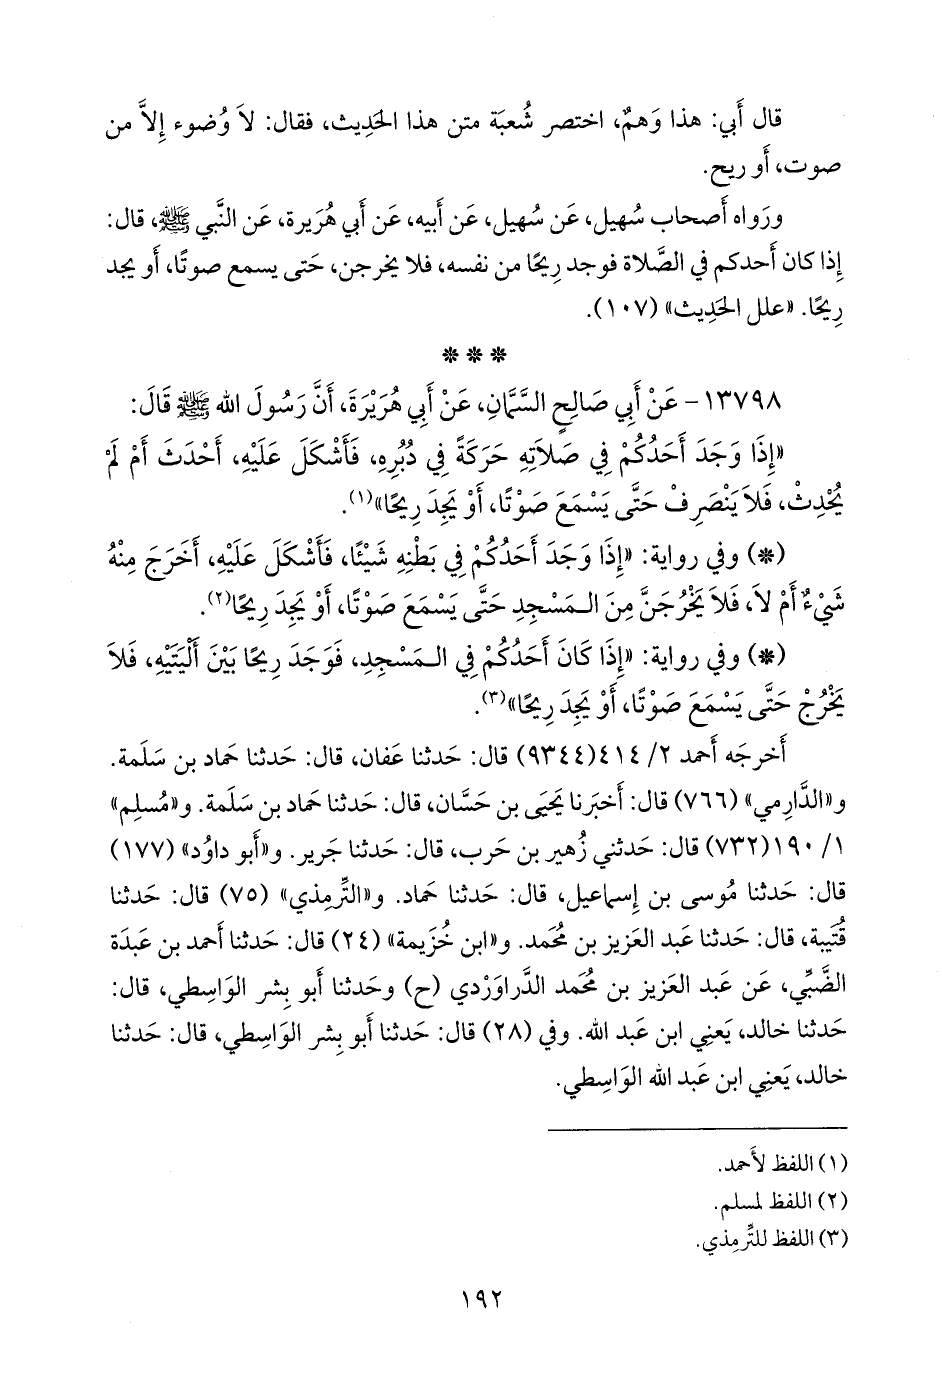 قال أَبي: هذا وَهمٌ، اختصر شُعبَة متن هذا الحَدِيث، فقال: لاَ وُضوء إِلاَّ من
صوت، أَو ريح.
ورَواه أَصحاب سُهيل، عَن سُهيل، عَن أَبيه، عَن أَبي هُرَيرة، عَن النَّبي ﷺ، قال:
إِذا كان أَحدكم في الصَّلاة فوجد رِيحًا من نفسه، فلا يخرجن، حَتى يسمع صوتًا، أَو يجد
رِيحًا. «علل الحَدِيث» (١٠٧).
* * *
١٣٧٩٨- عَنْ أَبِي صَالِحٍ السَّمَّانِ، عَنْ أَبِي هُرَيْرَةَ، أَنَّ رَسُولَ الله ﷺ قَالَ:
«إِذَا وَجَدَ أَحَدُكُمْ فِي صَلاَتِهِ حَرَكَةً فِي دُبُرِهِ، فَأَشْكَلَ عَلَيْهِ، أَحْدَثَ أَمْ لَمْ
يُحْدِثْ، فَلاَ يَنْصَرِفْ حَتَّى يَسْمَعَ صَوْتًا، أَوْ يَجِدَ رِيحًا»(١).
(*) وفي رواية: «إِذَا وَجَدَ أَحَدُكُمْ فِي بَطْنِهِ شَيْئًا، فَأَشْكَلَ عَلَيْهِ، أَخَرَجَ مِنْهُ
شَيْءٌ أَمْ لاَ، فَلاَ يَخْرُجَنَّ مِنَ الـمَسْجِدِ حَتَّى يَسْمَعَ صَوْتًا، أَوْ يَجِدَ رِيحًا(٢).
(*) وفي رواية: «إِذَا كَانَ أَحَدُكُمْ فِي الـمَسْجِدِ، فَوَجَدَ رِيحًا بَيْنَ أَلْيَتَيْهِ، فَلاَ
يَخْرُجْ حَتَّى يَسْمَعَ صَوْتًا، أَوْ يَجِدَ رِيحًا»(٣).
أَخرجَه أَحمد ٢/ ٤١٤(٩٣٤٤) قال: حَدثنا عَفان، قال: حَدثنا حَماد بن سَلَمة.
و«الدَّارِمي» (٧٦٦) قال: أَخبَرنا يَحيَى بن حَسَّان، قال: حَدثنا حَماد بن سَلَمة. و«مُسلِم»
١/ ١٩٠(٧٣٢) قال: حَدثني زُهير بن حَرب، قال: حَدثنا جَرير. و«أَبو داوُد» (١٧٧)
قال: حَدثنا مُوسى بن إِسماعيل، قال: حَدثنا حَماد. و«التِّرمِذي» (٧٥) قال: حَدثنا
قُتيبة، قال: حَدثنا عَبد العَزيز بن مُحمد. و«ابن خُزيمة» (٢٤) قال: حَدثنا أَحمد بن عَبدَة
الضَّبِّي، عَن عَبد العَزيز بن مُحَمد الدَّراوَرْدي (ح) وحَدثنا أَبو بِشر الوَاسِطي، قال:
حَدثنا خالد، يَعنِي ابن عَبد الله. وفي (٢٨) قال: حَدثنا أَبو بِشر الوَاسِطي، قال: حَدثنا
خالد، يَعنِي ابن عَبد الله الوَاسِطي.
(١) اللفظ لأَحمد.
(٢) اللفظ لمسلم.
(٣) اللفظ للتِّرمِذي.
١٩٢